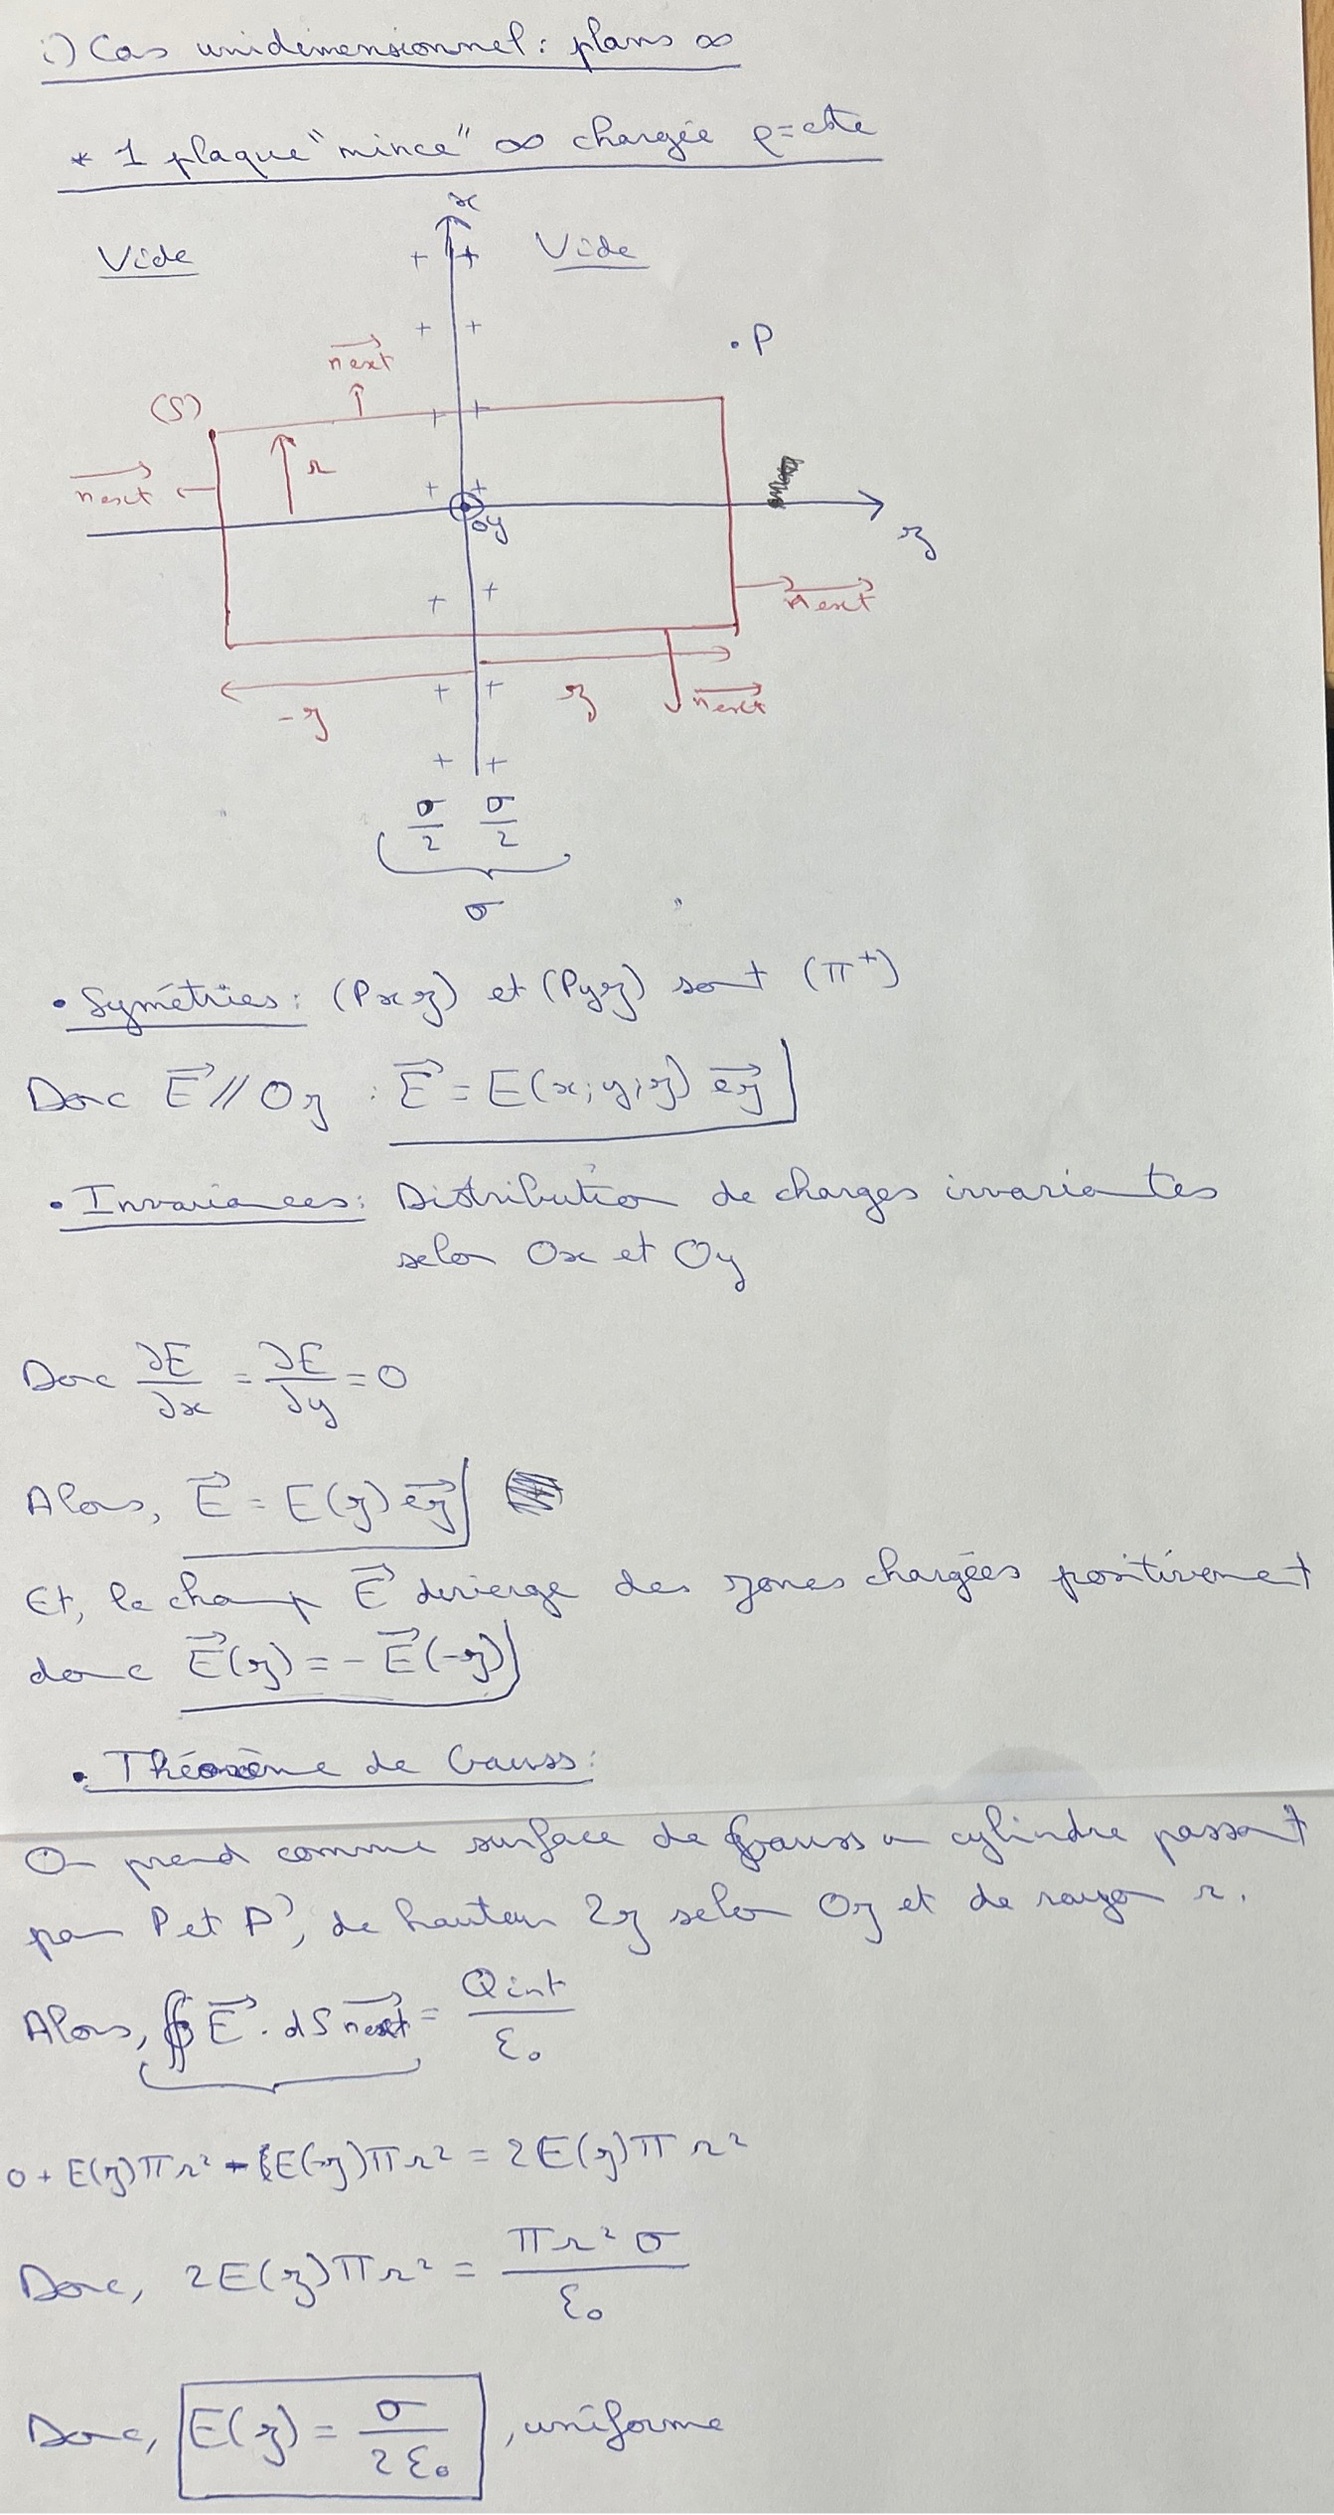 i) Cas unidimensionnel : plans ∞
* 1 plaque "mince" ∞ chargée ρ=cste
x
Vide + + Vide
+ +
.P
n⃗ext
(S)
+ +
r
n⃗ext
+ +
Oy
z
+ +
n⃗ext
-z
+ +
z
n⃗ext
+ +
σ/2 σ/2
σ
• Symétries : (Pxz) et (Pyz) sont (π⁺)
Donc E⃗ // Oz : E⃗ = E(x;y;z) e⃗z
• Invariances : Distribution de charges invariantes
selon Ox et Oy
Donc ∂E/∂x = ∂E/∂y = 0
Alors, E⃗ = E(z) e⃗z
Et, le champ E⃗ diverge des zones chargées positivement
donc E⃗(z) = - E⃗(-z)
• Théorème de Gauss :
On prend comme surface de Gauss un cylindre passant
par P et P', de hauteur 2z selon Oz et de rayon r.
Alors, ∯ E⃗ . dS n⃗ext = Qint/ε₀
0 + E(z)πr² - E(-z)πr² = 2E(z)πr²
Donc, 2E(z)πr² = πr²σ/ε₀
Donc, E(z) = σ/2ε₀ , uniforme